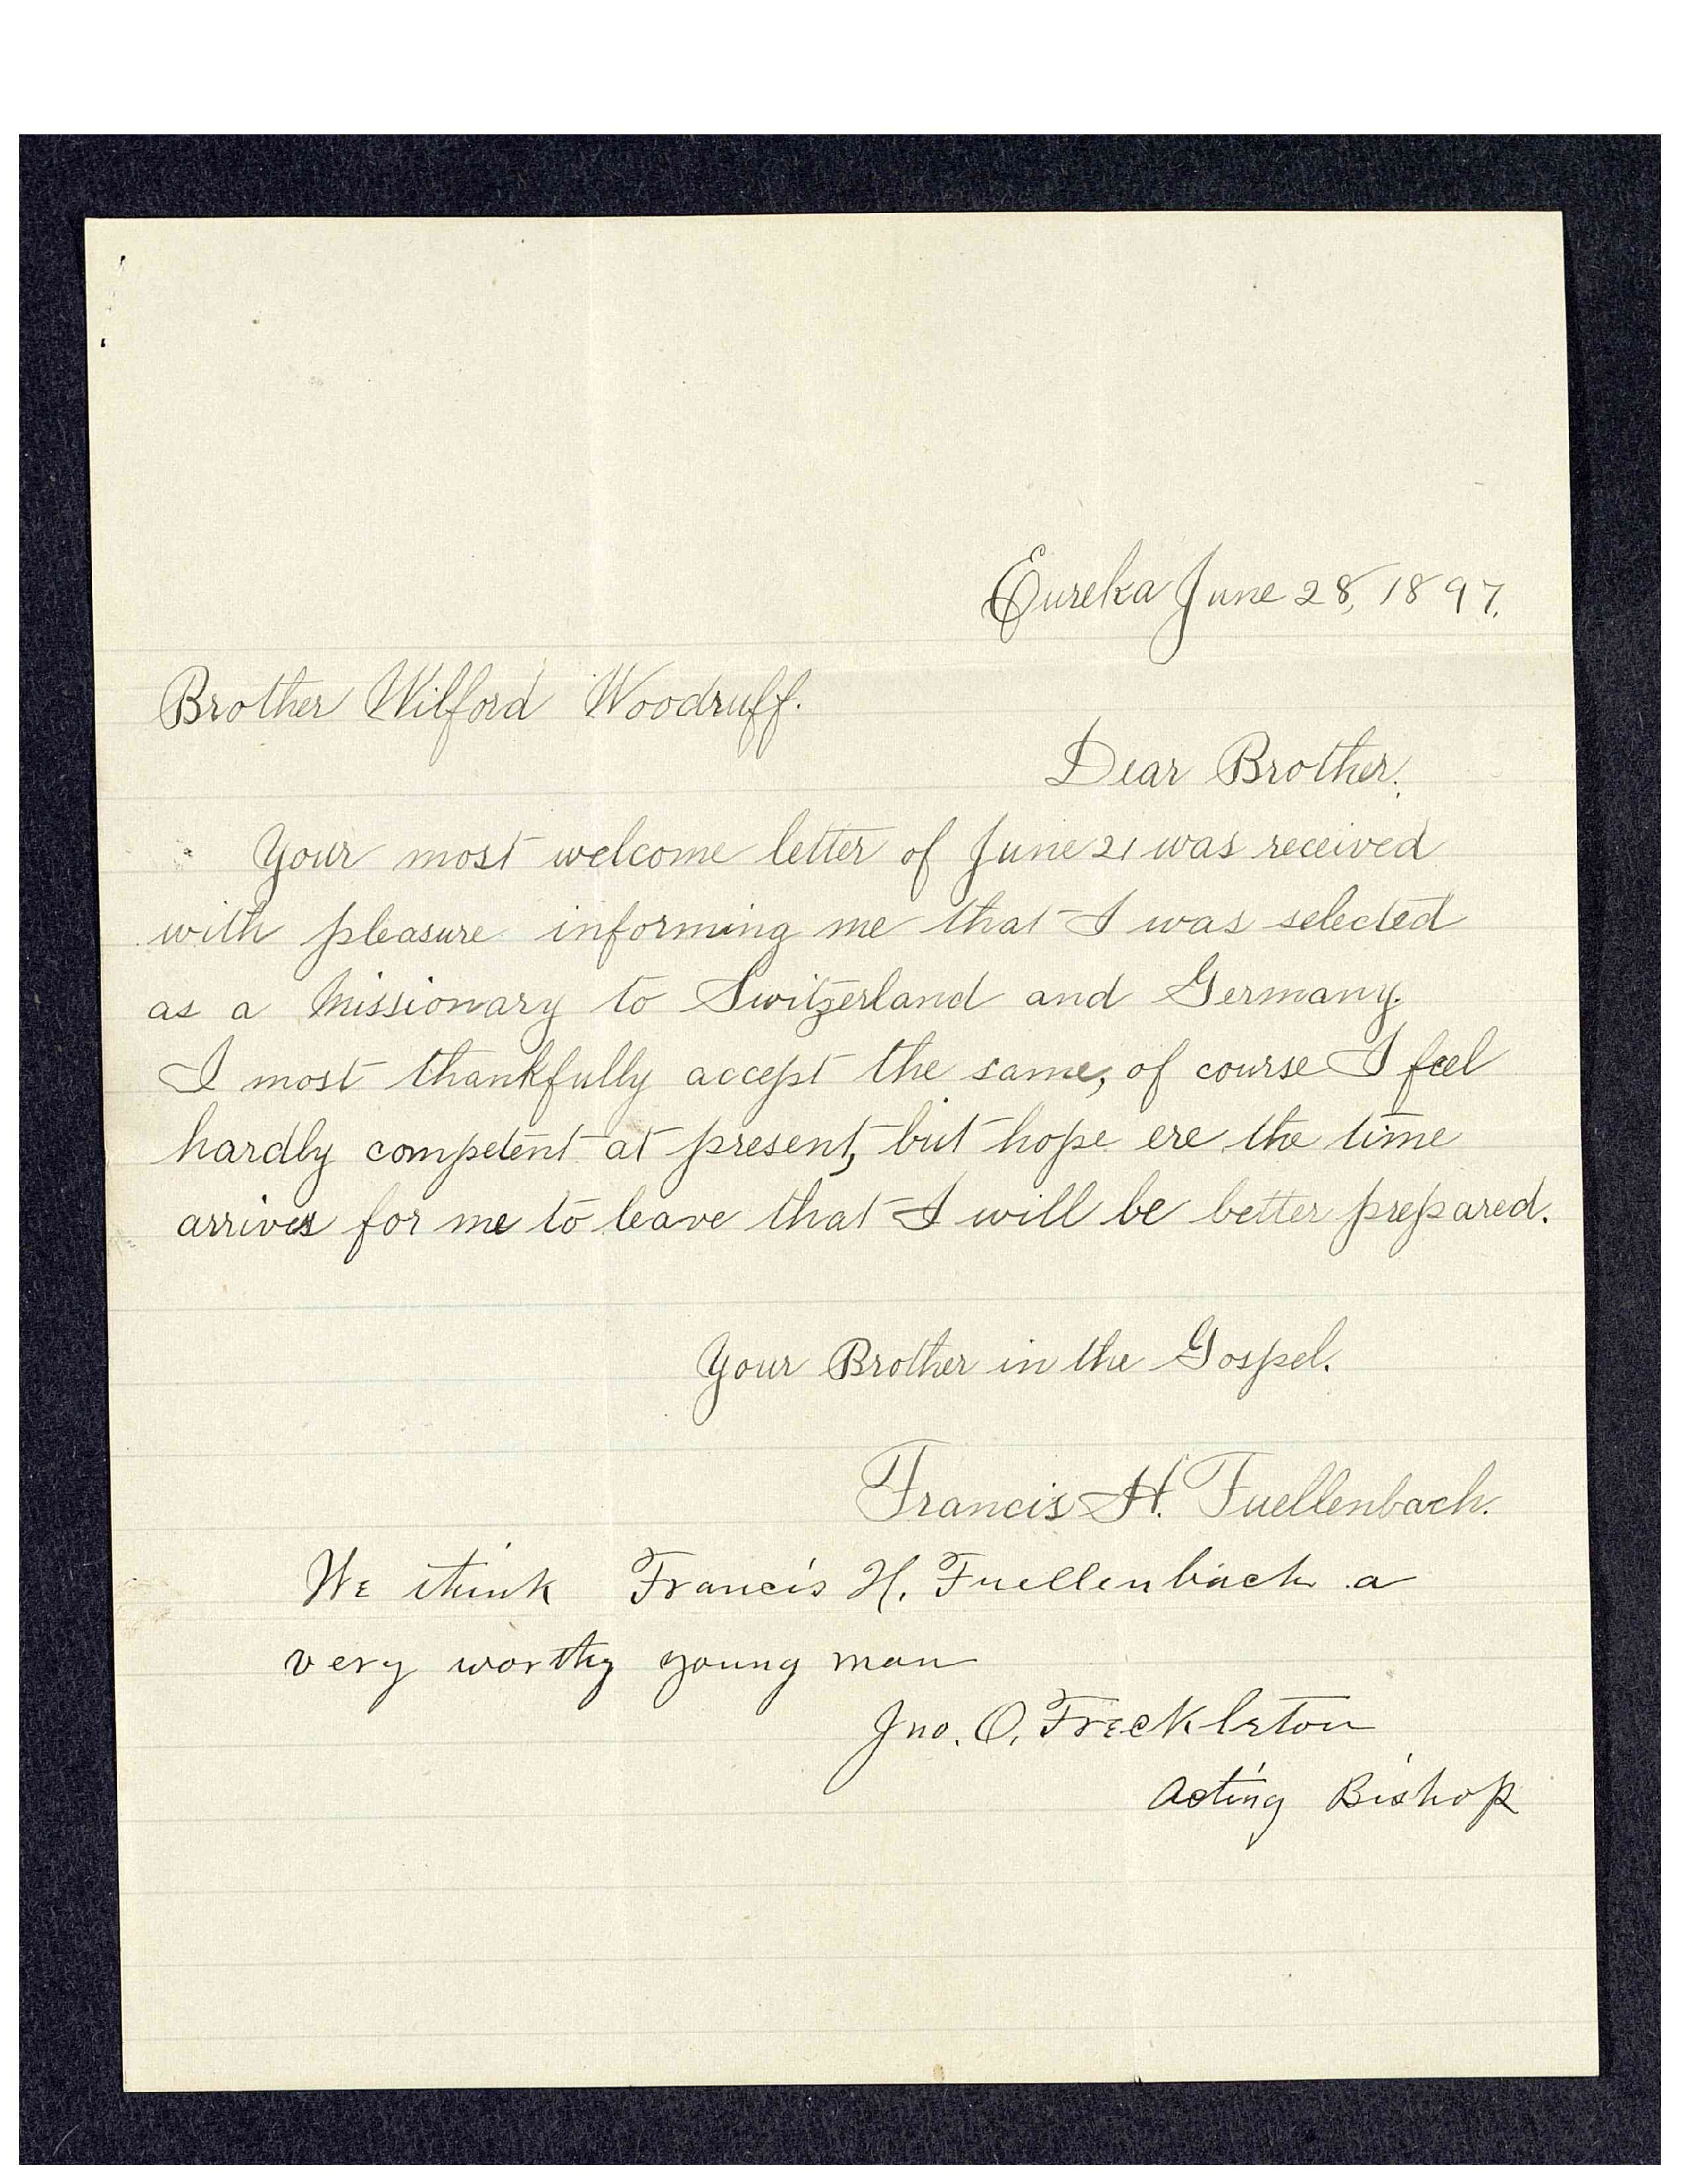 Eureka June 28, 1897.
Brother Wilford Woodruff.
Dear Brother.
Your most welcome letter of June 21 was received
with pleasure informing me that I was selected
as a Missionary to Switzerland and Germany.
I most thankfully accept the same, of course I feel
hardly competent at present, but hope ere the time
arrives for me to leave that I will be better prepared.
Your Brother in the Gospel.
Francis H. Fuellenbach.
We think Francis H. Fuellenbach a
very worthy young man
Jno. O. Freckleton
Acting Bishop